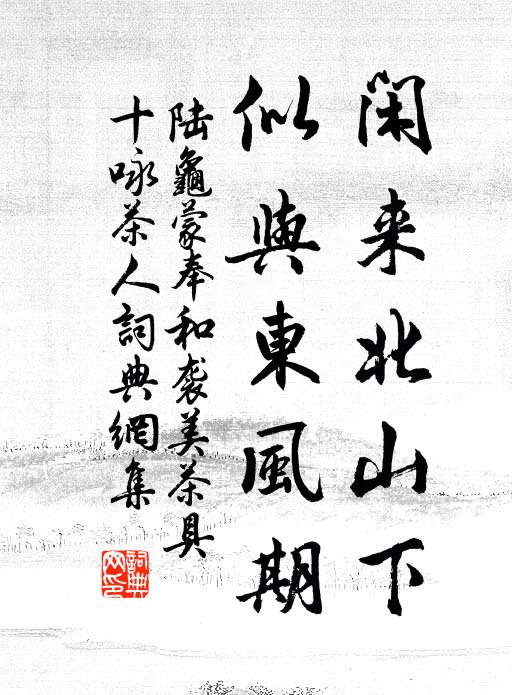 闲来北山下
似與東風期
陆龜蒙奉和袭美茶具
十咏茶人詞典網集
詞典网印